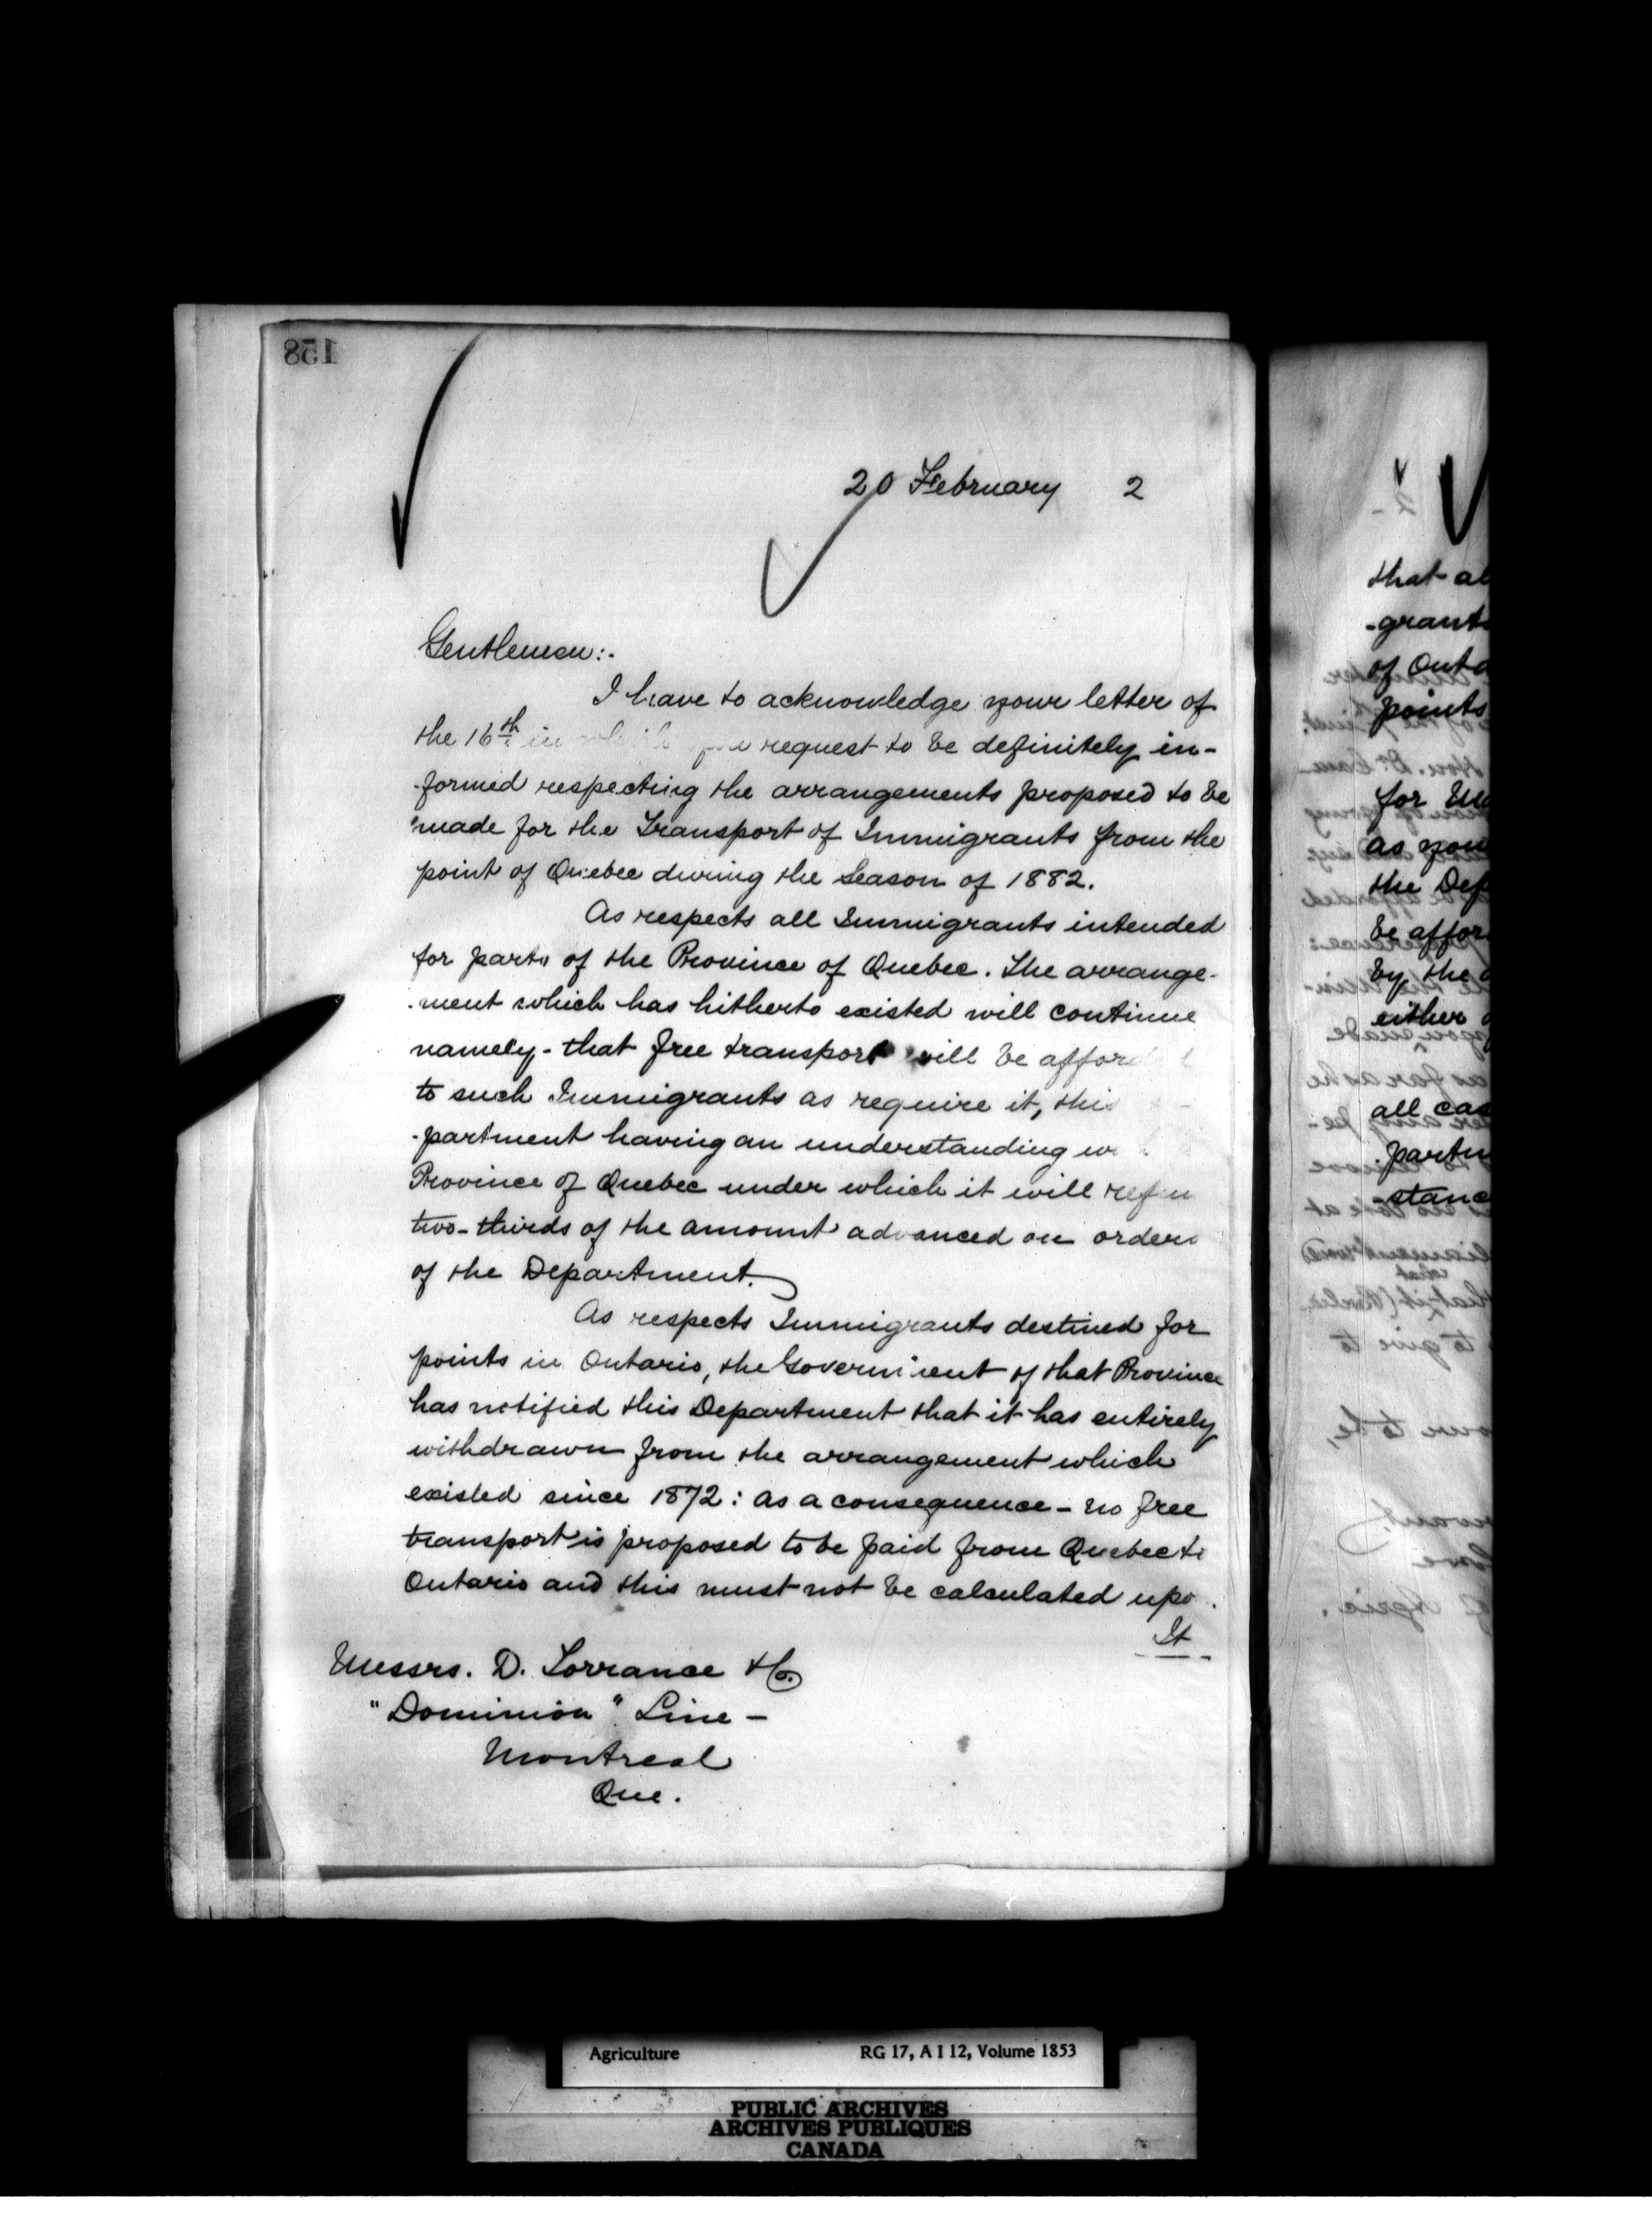 158
20 February 2
Gentlemen:.
I have to acknowledge your letter of
the 16th in which you request to be definitely in-
-formed respecting the arrangements proposed to be
made for the Transport of Immigrants from the
point of Quebec during the Season of 1882.
As respects all Immigrants intended
for parts of the Province of Quebec. The arrange-
-ment which has hitherto existed will continue
namely - that free transport will be afford
to such Immigrants as require it, this
-partment having an understanding
Province of Quebec under which it will
two-thirds of the amount advanced on orders
of the Department.
As respects Immigrants destined for
points in Ontario, the Government of that Province
has notified this Department that it has entirely
withdrawn from the arrangement which
existed since 1872: as a consequence - no free
transport is proposed to be paid from Quebec to
Ontario and this must not be calculated upo
It
Messrs. D. Torrance & Co.
"Dominion" Line -
Montreal
Que.
that al
-grants
of Onta
points
for
as you
the Dep
be affor
by the
either
all cas
partm
-stanc
Agriculture RG 17, A I 12, Volume 1853
PUBLIC ARCHIVES
ARCHIVES PUBLIQUES
CANADA